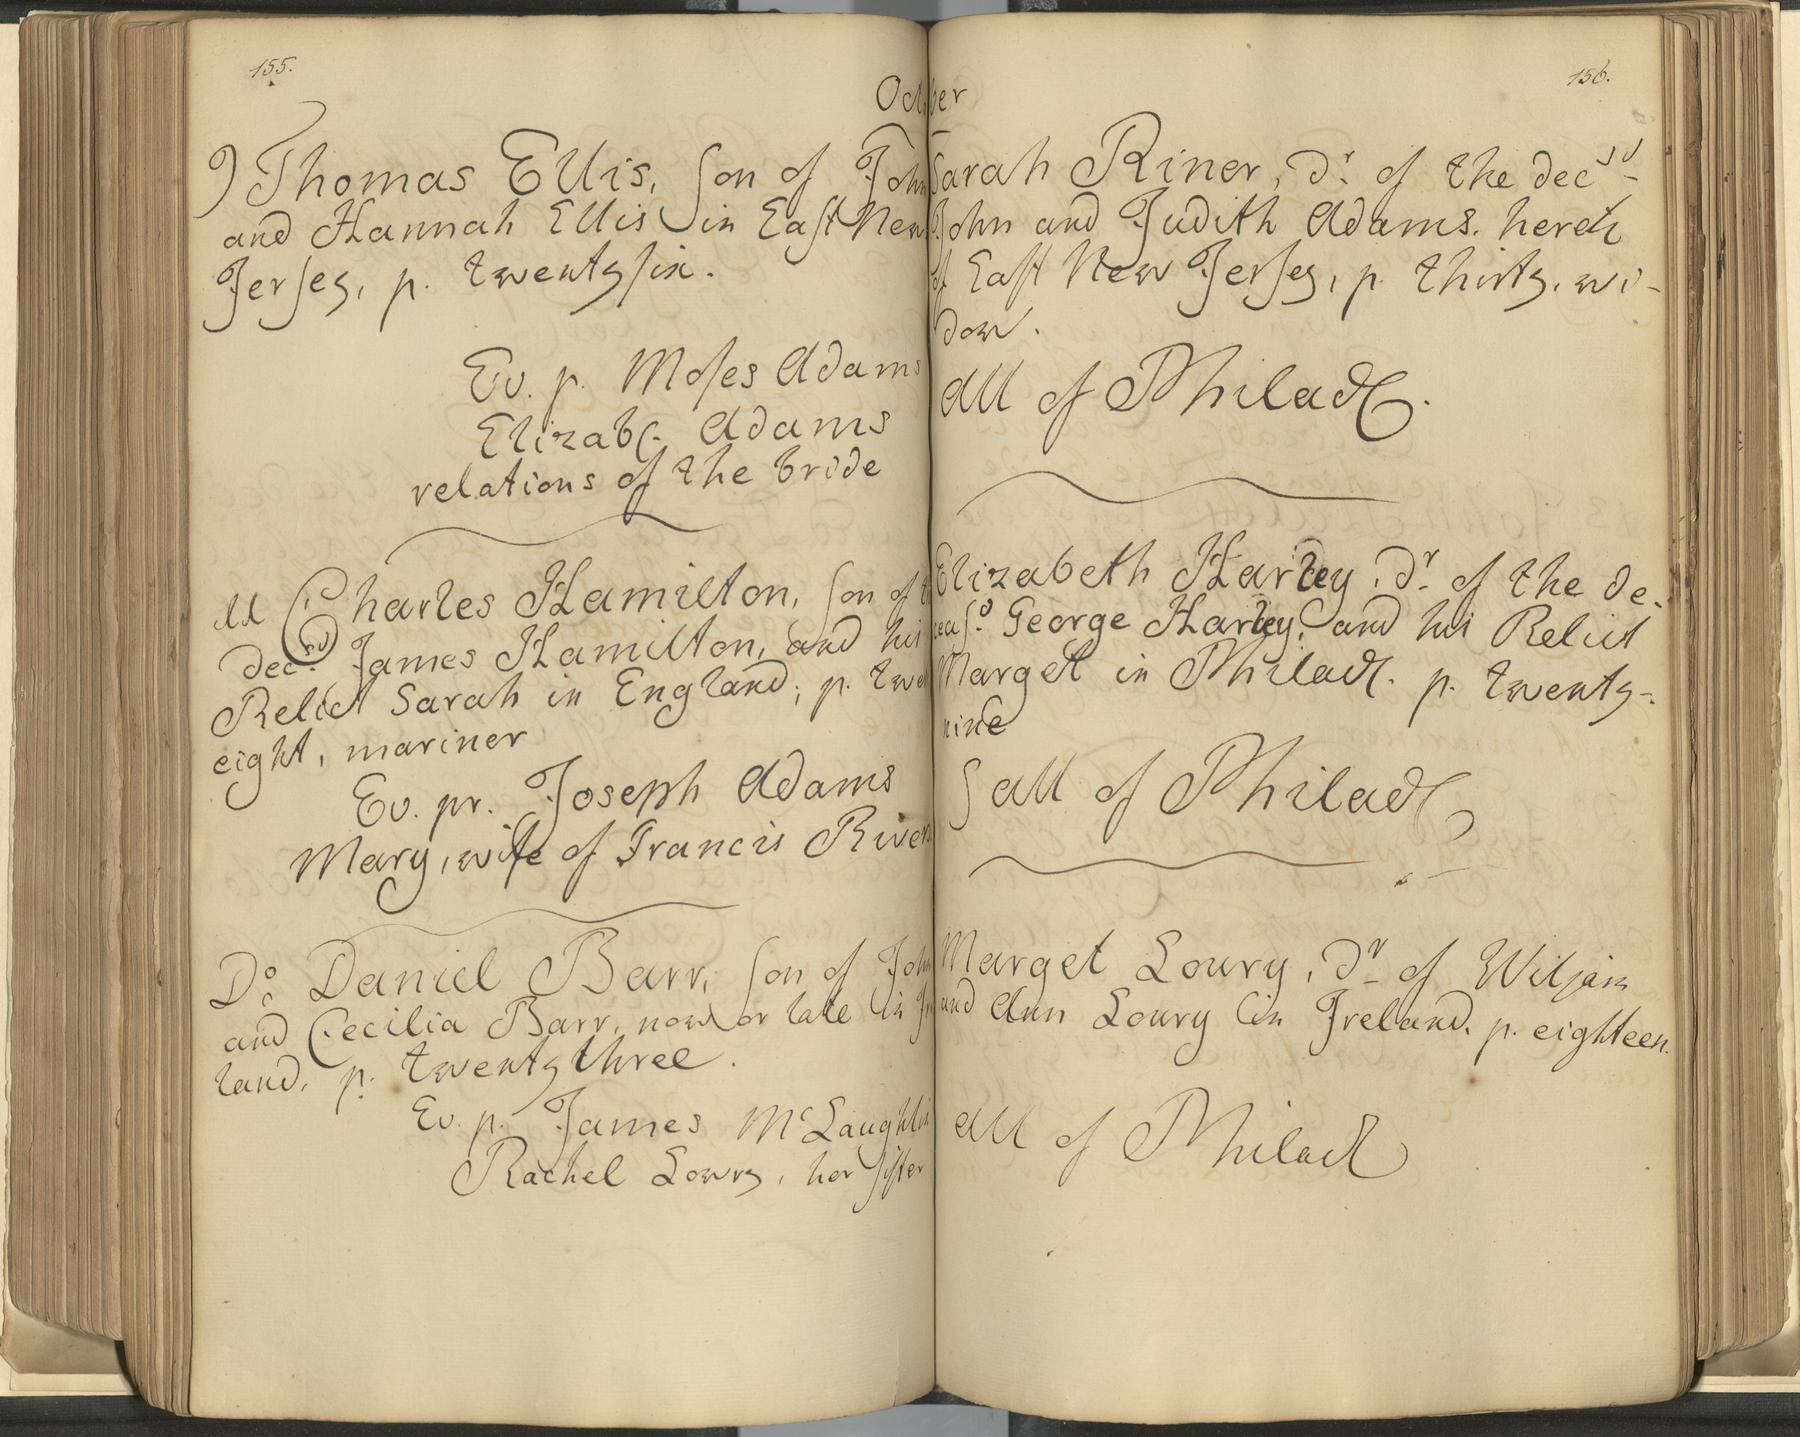 155.
October
9 Thomas Ellis, son of John
and Hannah Ellis in East New
Jersey, p. twenty six.
Ev. p. Moses Adams
Elizab. Adams
relations of the bride
11 Charles Hamilton, son of t
decrd. James Hamilton, and his
Relict Sarah in England; p. twe
eight, mariner
Ev. pr. Joseph Adams
Mary, wife of Francis River
Do. Daniel Barr, son of John
and Cecilia Barr, now or late in Ir
land, p. twenty three.
Ev. p. James McLaughlin
Rachel Lowry, her sister
156.
Sarah Riner, dr. of the decsd
John and Judith Adams.
of East New Jersey, p. thirty, wi-
dow.
All of Philad.
Elizabeth Harley, dr. of the de-
ceasd. George Harley, and his Relict
Marget in Philad. p. twenty-
nine
all of Philad
Marget Loury, dr. of Wiljam
and Ann Loury in Ireland, p. eighteen.
All of Philad